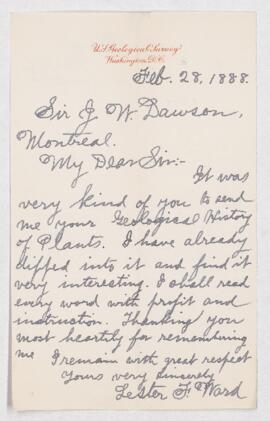 U.S. Geological Survey
Washington, D.C.
Feb. 28, 1888.
Sir J. W. Dawson,
Montreal.
My Dear Sir:-
It was
very kind of you to send
me your Geological History
of Plants. I have already
dipped into it and find it
very interesting. I shall read
every word with profit and
instruction. Thanking you
most heartily for remembering
me I remain with great respect
Yours very sincerely
Lester F. Ward